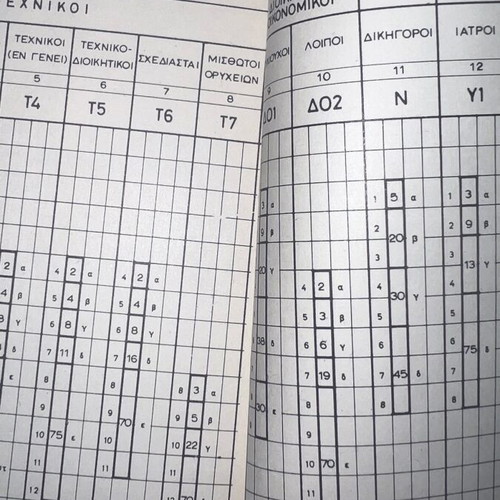 ΤΕΧΝΙΚΟΙ
ΤΕΧΝΙΚΟΙ
(ΕΝ ΓΕΝΕΙ)
5
Τ4
ΤΕΧΝΙΚΟ-
ΔΙΟΙΚΗΤΙΚΟΙ
6
Τ5
ΣΧΕΔΙΑΣΤΑΙ
7
Τ6
ΜΙΣΘΩΤΟΙ
ΟΡΥΧΕΙΩΝ
8
Τ7
2 α
4 β
8 γ
δ
ε
4 2 α
5 4 β
6 8 γ
7 11 δ
8
9
10 75 ε
11
4 2 α
5 4 β
6 8 γ
7 16 δ
8
9 70 ε
10
11
8 3 α
9 5 β
10 22 γ
11
12 70
ΟΙΚΟΝΟΜΙΚΟΙ
9
ΔΟ1
ΛΟΙΠΟΙ
10
ΔΟ2
ΔΙΚΗΓΟΡΟΙ
11
Ν
ΙΑΤΡΟΙ
12
Υ1
3 α
9 β
20 γ
38 δ
30 ε
4 2 α
5 3 β
6 6 γ
7 19 δ
8
9
10 70 ε
11
1 5 α
2 20 β
3
4 30 γ
5
6
7 45 δ
8
1 3 α
2 9 β
3 13 γ
4
5
6 75 δ
7
8